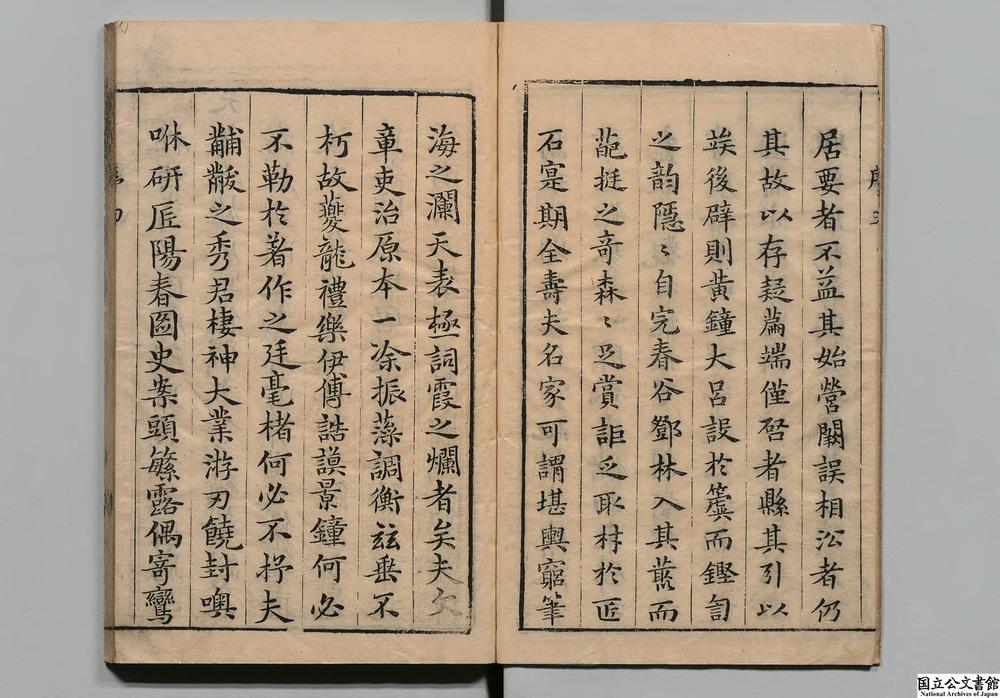 居要者不益其始營闕誤相沿者仍
其故以存疑篇端僅啓者縣其引以
竢後辟則黄鐘大呂設於簴而鏗訇
之韵隱〻自完春谷鄧林入其叢而
葩挺之奇森〻足賞詎乏取材於匠
石寔期全壽夫名家可謂堪輿窮筆
海之瀾天表極詞霞之爛者矣夫文
章吏治原本一凃振藻調衡玆垂不
朽故夔龍禮樂伊傅誥謨景鐘何必
不勒於著作之廷毫楮何必不抒夫
黼黻之秀君棲神大業游刃饒封噢
咻研匠陽春圖史案頭繁露偶寄鸞
国立公文書館
National Archives of Japan